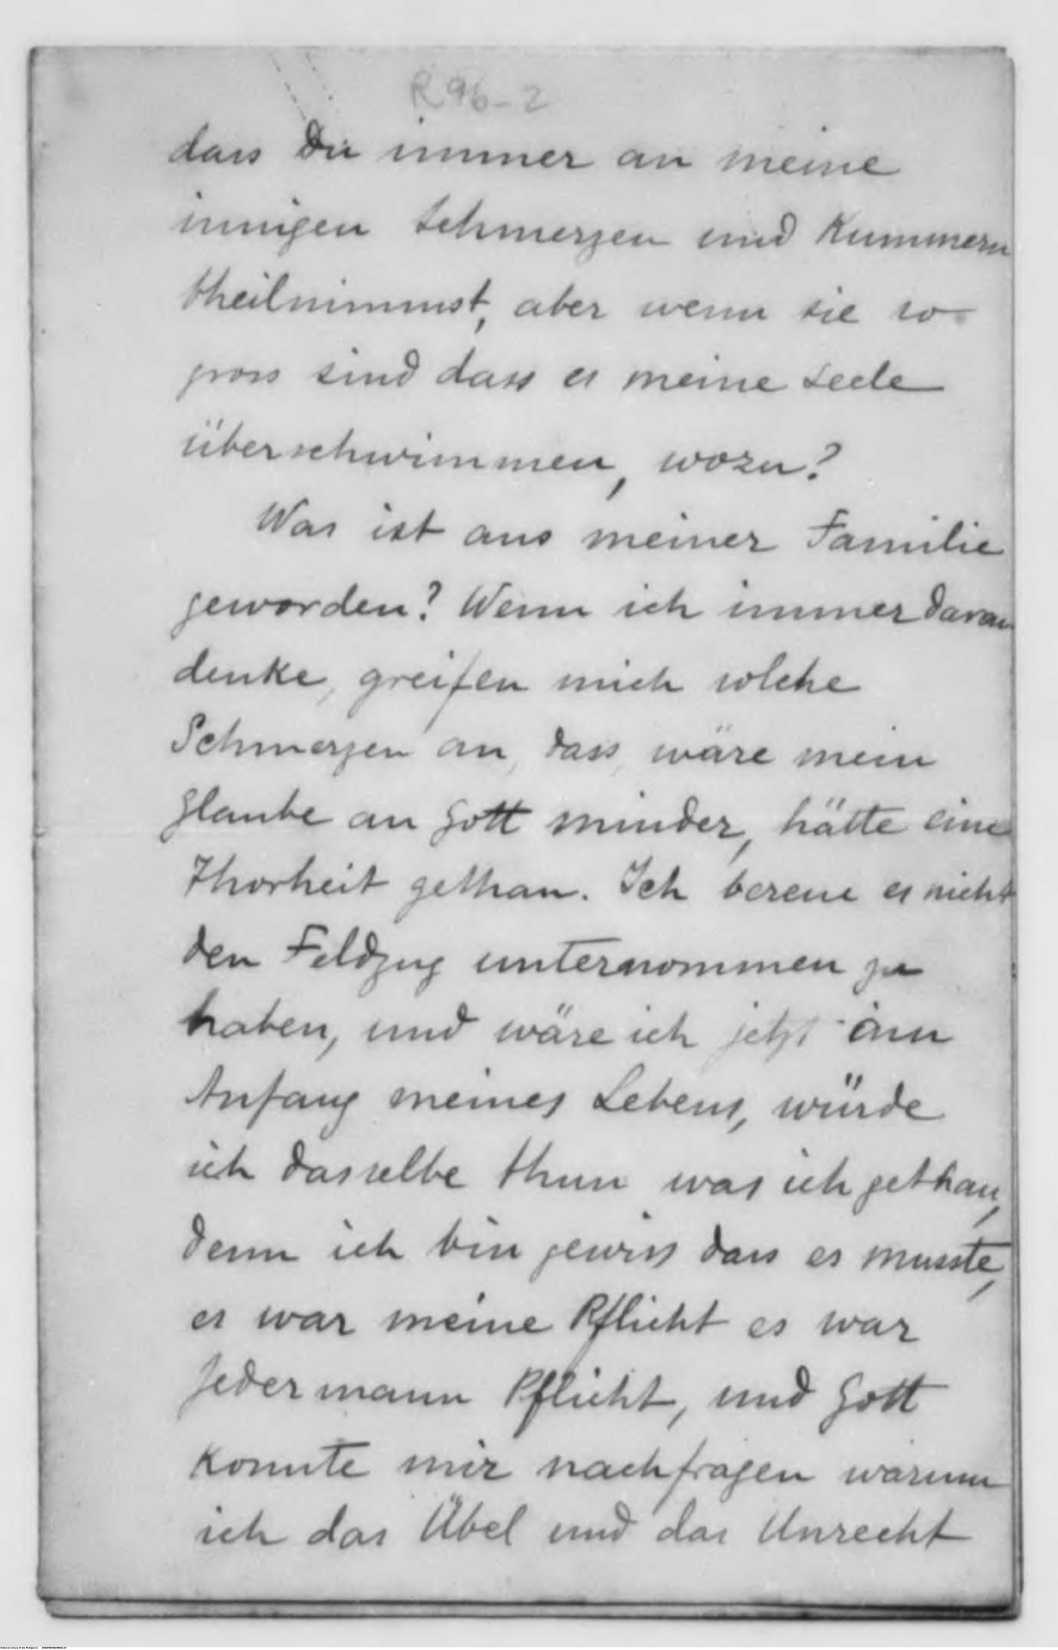 R 96-2
dass Du immer an meine
innigen Schmerzen und Kummern
theilnimmst, aber wenn sie so
gross sind dass es meine Seele
überschwimmen, wozu?
Was ist aus meiner Familie
geworden? Wenn ich immer daran
denke, greifen mich solche
Schmerzen an, dass, wäre mein
Glaube an Gott minder, hätte eine
Thorheit gethan. Ich bereue es nicht
den Feldzug unternommen zu
haben, und wäre ich jetzt am
Anfang meines Lebens, würde
ich dasselbe thun was ich gethan,
denn ich bin gewiss dass es musste,
es war meine Pflicht es war
Jedermann Pflicht, und Gott
konnte mir nachfragen warum
ich das Übel und das Unrecht